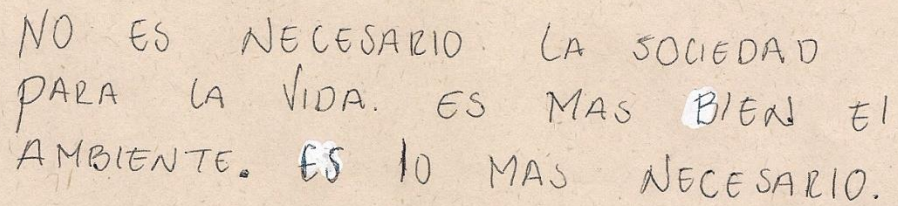 NO ES NECESARIO LA SOCIEDAD
PARA LA VIDA. ES MAS BIEN El
AMBIENTE. ES lO MAS NECESARIO.